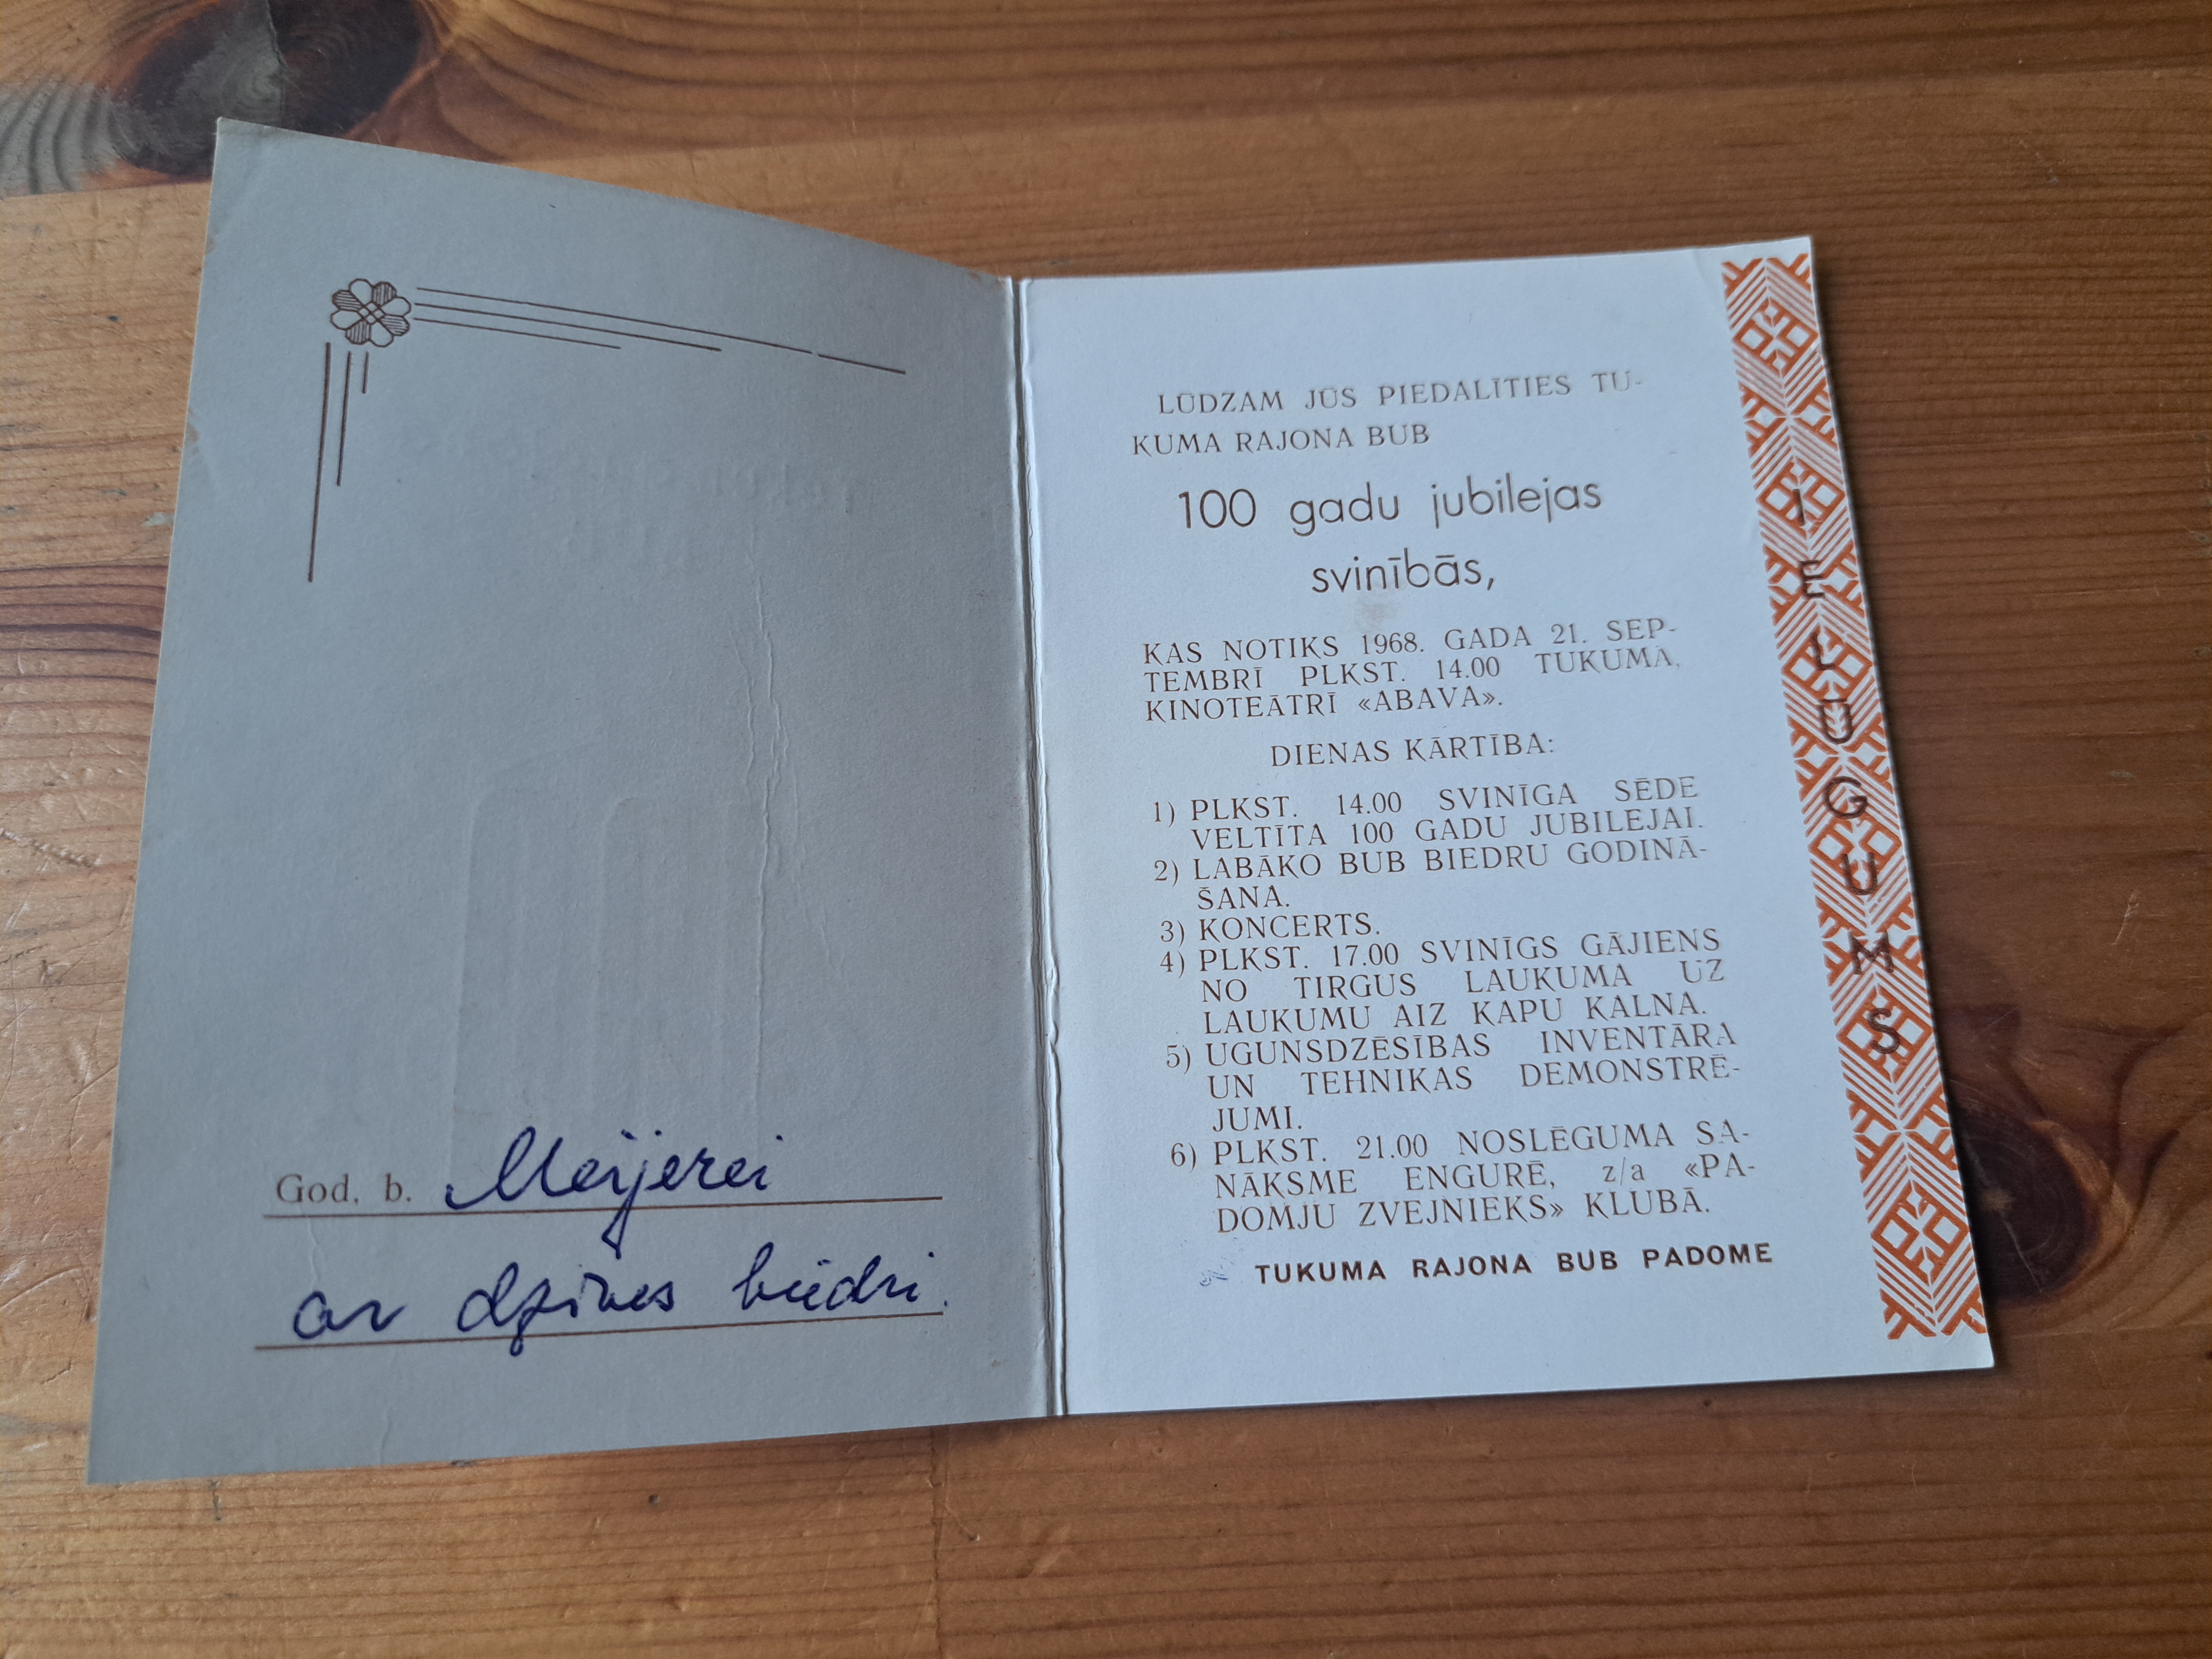 God. b. Meijerei
ar dzīves biedri.
LŪDZAM JŪS PIEDALĪTIES TU-
KUMA RAJONA BUB
100 gadu jubilejas
svinībās,
KAS NOTIKS 1968. GADA 21. SEP-
TEMBRĪ PLKST. 14.00 TUKUMĀ,
KINOTEĀTRĪ «ABAVA».
DIENAS KĀRTĪBA:
1) PLKST. 14.00 SVINĪGA SĒDE
VELTĪTA 100 GADU JUBILEJAI.
2) LABĀKO BUB BIEDRU GODINĀ-
ŠANA.
3) KONCERTS.
4) PLKST. 17.00 SVINĪGS GĀJIENS
NO TIRGUS LAUKUMA UZ
LAUKUMU AIZ KAPU KALNA.
5) UGUNSDZĒSĪBAS INVENTĀRA
UN TEHNIKAS DEMONSTRĒ-
JUMI.
6) PLKST. 21.00 NOSLĒGUMA SA-
NĀKSME ENGURĒ, z/a «PA-
DOMJU ZVEJNIEKS» KLUBĀ.
TUKUMA RAJONA BUB PADOME
IELŪGUMS